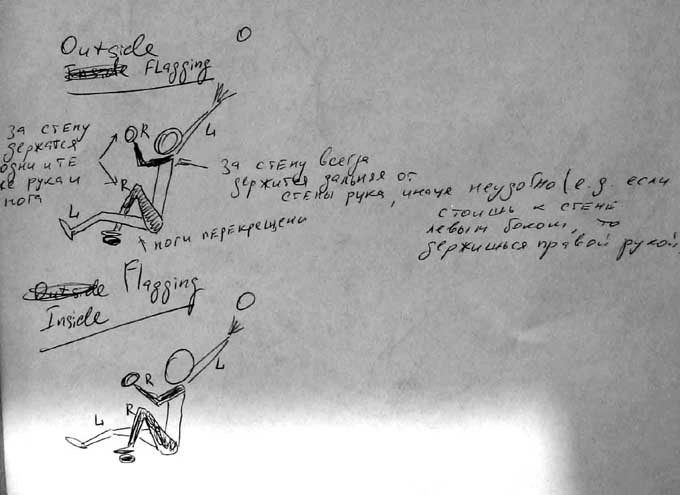 Outside
Inside Flagging
за стену
держатся
одни и те
же рука и
нога
R
L
R
L
за стену всегда
держится дальняя от
стены рука, иначе неудобно (e.g. если
стоишь к стене
левым боком, то
держишься правой рукой)
ноги перекрещены
Outside Flagging
Inside
R
L
R
L